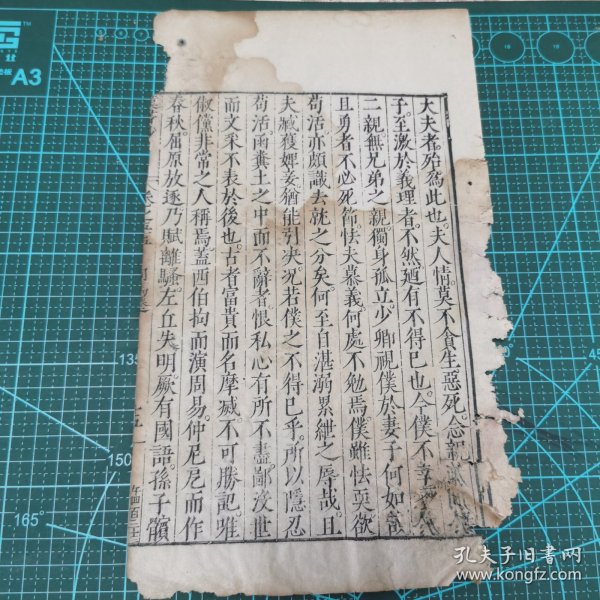 大夫者殆爲此也。夫人情莫不貪生惡死。念親
子。至激於義理者不然。廼有不得已也。今僕不幸
二親。無兄弟之親。獨身孤立。少卿視僕於妻子何如哉
且勇者不必死節。怯夫慕義。何處不勉焉。僕雖怯耎欲
茍活。亦頗識去就之分矣。何至自湛溺累紲之辱哉。且
夫臧獲婢妾。猶能引决。况若僕之不得已乎。所以隱忍
茍活。函糞土之中而不辭者。恨私心有所不盡。鄙沒世
而文采不表於後也。古者富貴而名摩滅。不可勝記。唯
俶儻非常之人稱焉。蓋西伯拘而演周易。仲尼戹而作
春秋。屈原放逐。乃賦離騷。左丘失明。厥有國語。孫子髕
卷之五
A3
135°
150°
165°
孔夫子旧书网
www.kongfz.com